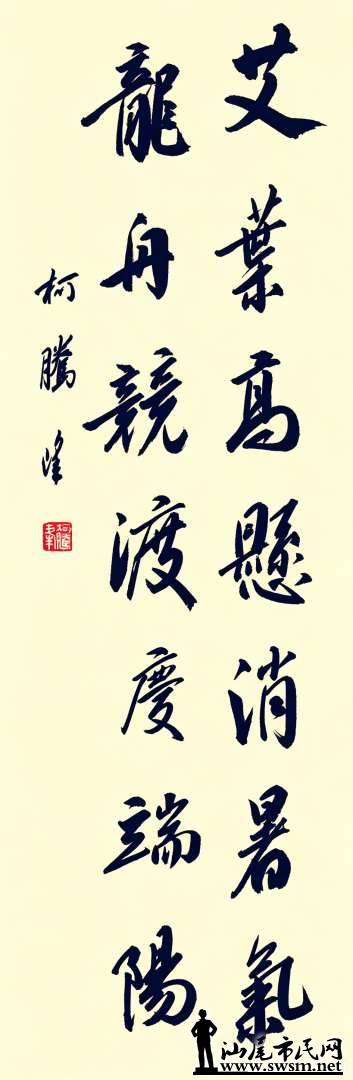 艾葉高懸消暑氣
龍舟競渡慶端陽
柯騰峰
汕尾市民网
www.swsm.net